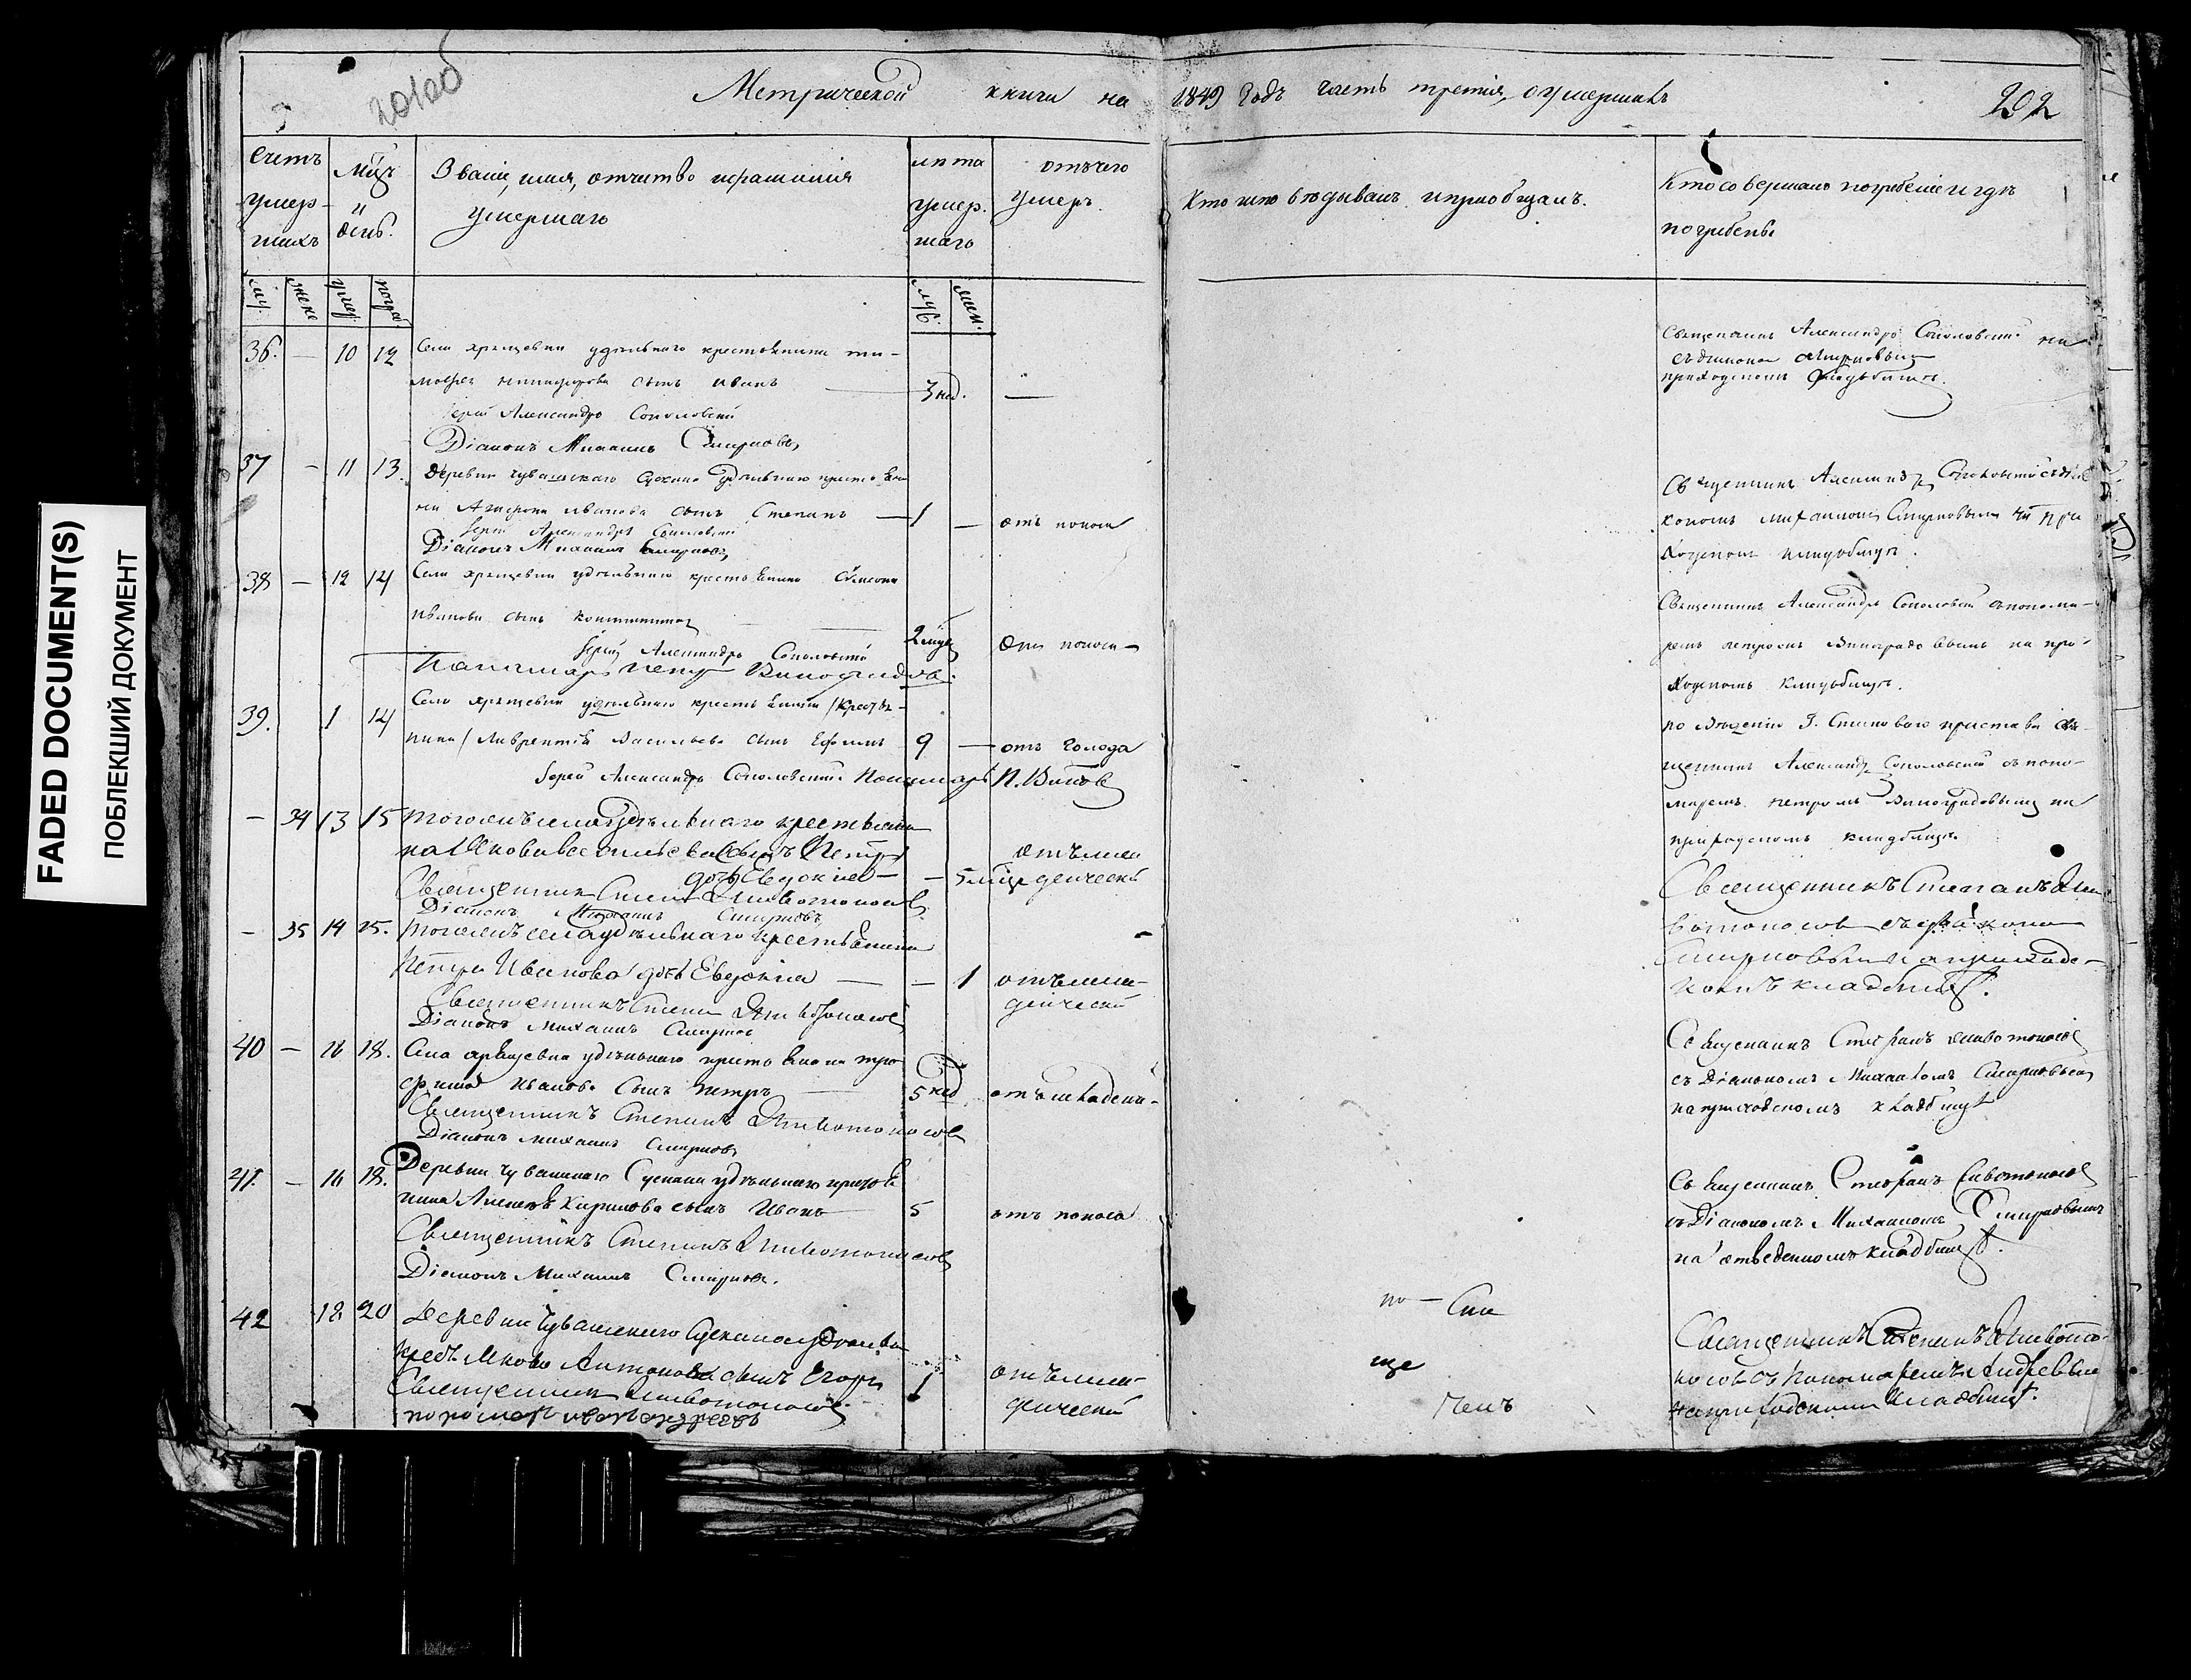 FADED DOCUMENT(S)
ПОБЛЕКШИЙ ДОКУМЕНТ
201об
Метрической книги на 1849 годъ часть третія, о умершихъ
202
Счетъ умер-шихъ
Мцъ и день.
Званіе, имя, отчество и фамилія умершаго
лѣта умер.шаго
отъ чего умеръ.
Кто исповѣдывалъ и пріобщалъ.
Кто совершалъ погребеніе и гдѣ погребены
му. жене умер. погре. муж. жен.
36. — 10 12 Села Хрящевки удѣльнаго крестьянина ти-
мофея сынъ Иванъ — 3 нед. —
Іерей Александръ Соколовскій
Діаконъ Михаилъ Смирновъ
Священникъ Александръ Соколовскій
съ діакономъ Смирновымъ на
приходскомъ кладбищѣ.
37 — 11 13. Деревни Чувашскаго Сускана удѣльнаго крестьяни
на Иванова сынъ Степанъ — 1 — отъ поноса
Іерей Александръ Соколовскій
Діаконъ Михаилъ Смирновъ
Священникъ Александръ Соколовскій съ діа
кономъ Михаиломъ Смирновымъ на при
ходскомъ кладбищѣ.
38 — 12 14 Села Хрящевки удѣльнаго крестьянина Семена
Иванова сынъ Константинъ — 2 мцъ Отъ поноса
Іерей Александръ Соколовскій
Пономарь Петръ Виноградовъ.
Священникъ Александръ Соколовскій съ понома-
ремъ Петромъ Виноградовымъ на при-
ходскомъ кладбищѣ.
39. 1 14 Села Хрящевки удѣльнаго крестьянина /Крестья-
нина/ Лаврентія Васильева сынъ Ефимъ 9 — отъ голода
Іерей Александръ Соколовскій Пономарь П. Вин.овъ
по Становаго пристава Свя-
щенникъ Александръ Соколовскій съ поно-
маремъ Петромъ Виноградовымъ на
приходскомъ кладбищѣ.
— 34 13 15 Тогожъ села удѣльнаго крестьяни
на Якова Васильева Петра
дочь Евдокія — — 5 мцъ отъ младенческой
Священникъ Степанъ Животоносовъ
Діаконъ Михаилъ Смирновъ
Священникъ Степанъ Жи
вотоносовъ съ діакономъ
Смирновымъ на приходс-
комъ кладбищѣ.
— 35 14 25. Тогожъ села удѣльнаго крестьянина
Петра Иванова дочь Евдокія — — 1 отъ мла-
денческой
Священникъ Степанъ Животоносовъ
Діаконъ Михаилъ Смирновъ
40 — 16 18. Села Хрящевки удѣльнаго крестьянина Тро
фима Иванова сынъ Петръ — 5 нед отъ младенч-
Священникъ Степанъ Животоносовъ
Діаконъ Михаилъ Смирновъ
Священникъ Стефанъ Животоносовъ
съ Діакономъ Михаиломъ Смирновымъ
на приходскомъ кладбищѣ
41. — 16 18. Деревни Чувашскаго Сускана удѣльнаго крестья
нина Алексѣя Кирилова сынъ Иванъ 5 отъ поноса
Священникъ Степанъ Животоносовъ
Діаконъ Михаилъ Смирновъ.
Священникъ Стефанъ Животоносовъ
съ Діакономъ Михаиломъ Смирновымъ
на отведенномъ кладбищѣ.
42 18 20 Деревни Чувашскаго Сускана удѣльна
крест. Якова Антонова сынъ Егоръ 1 отъ мла-
денческой
Священникъ Животоносовъ
пономарь Андреевъ
Священникъ Степанъ Живото-
носовъ съ пономаремъ Андреевымъ
на приходскомъ кладбищѣ.
по — Свя
ще
никъ